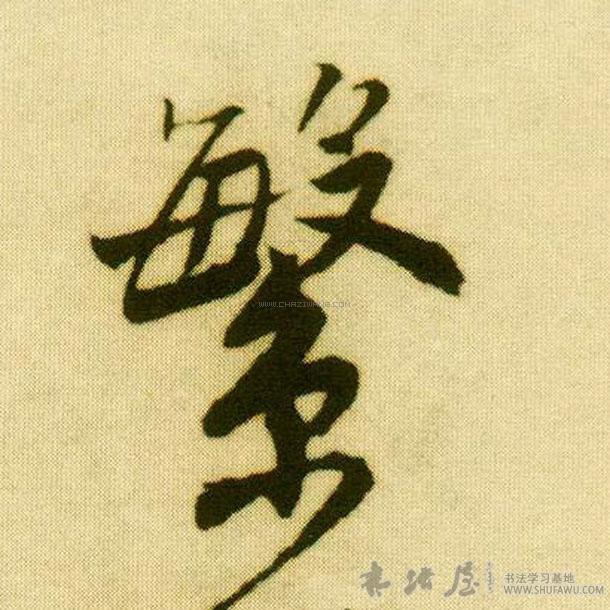 繁
WWW.CHAZIWANG.COM
書法屋 书法学习基地
WWW.SHUFAWU.COM